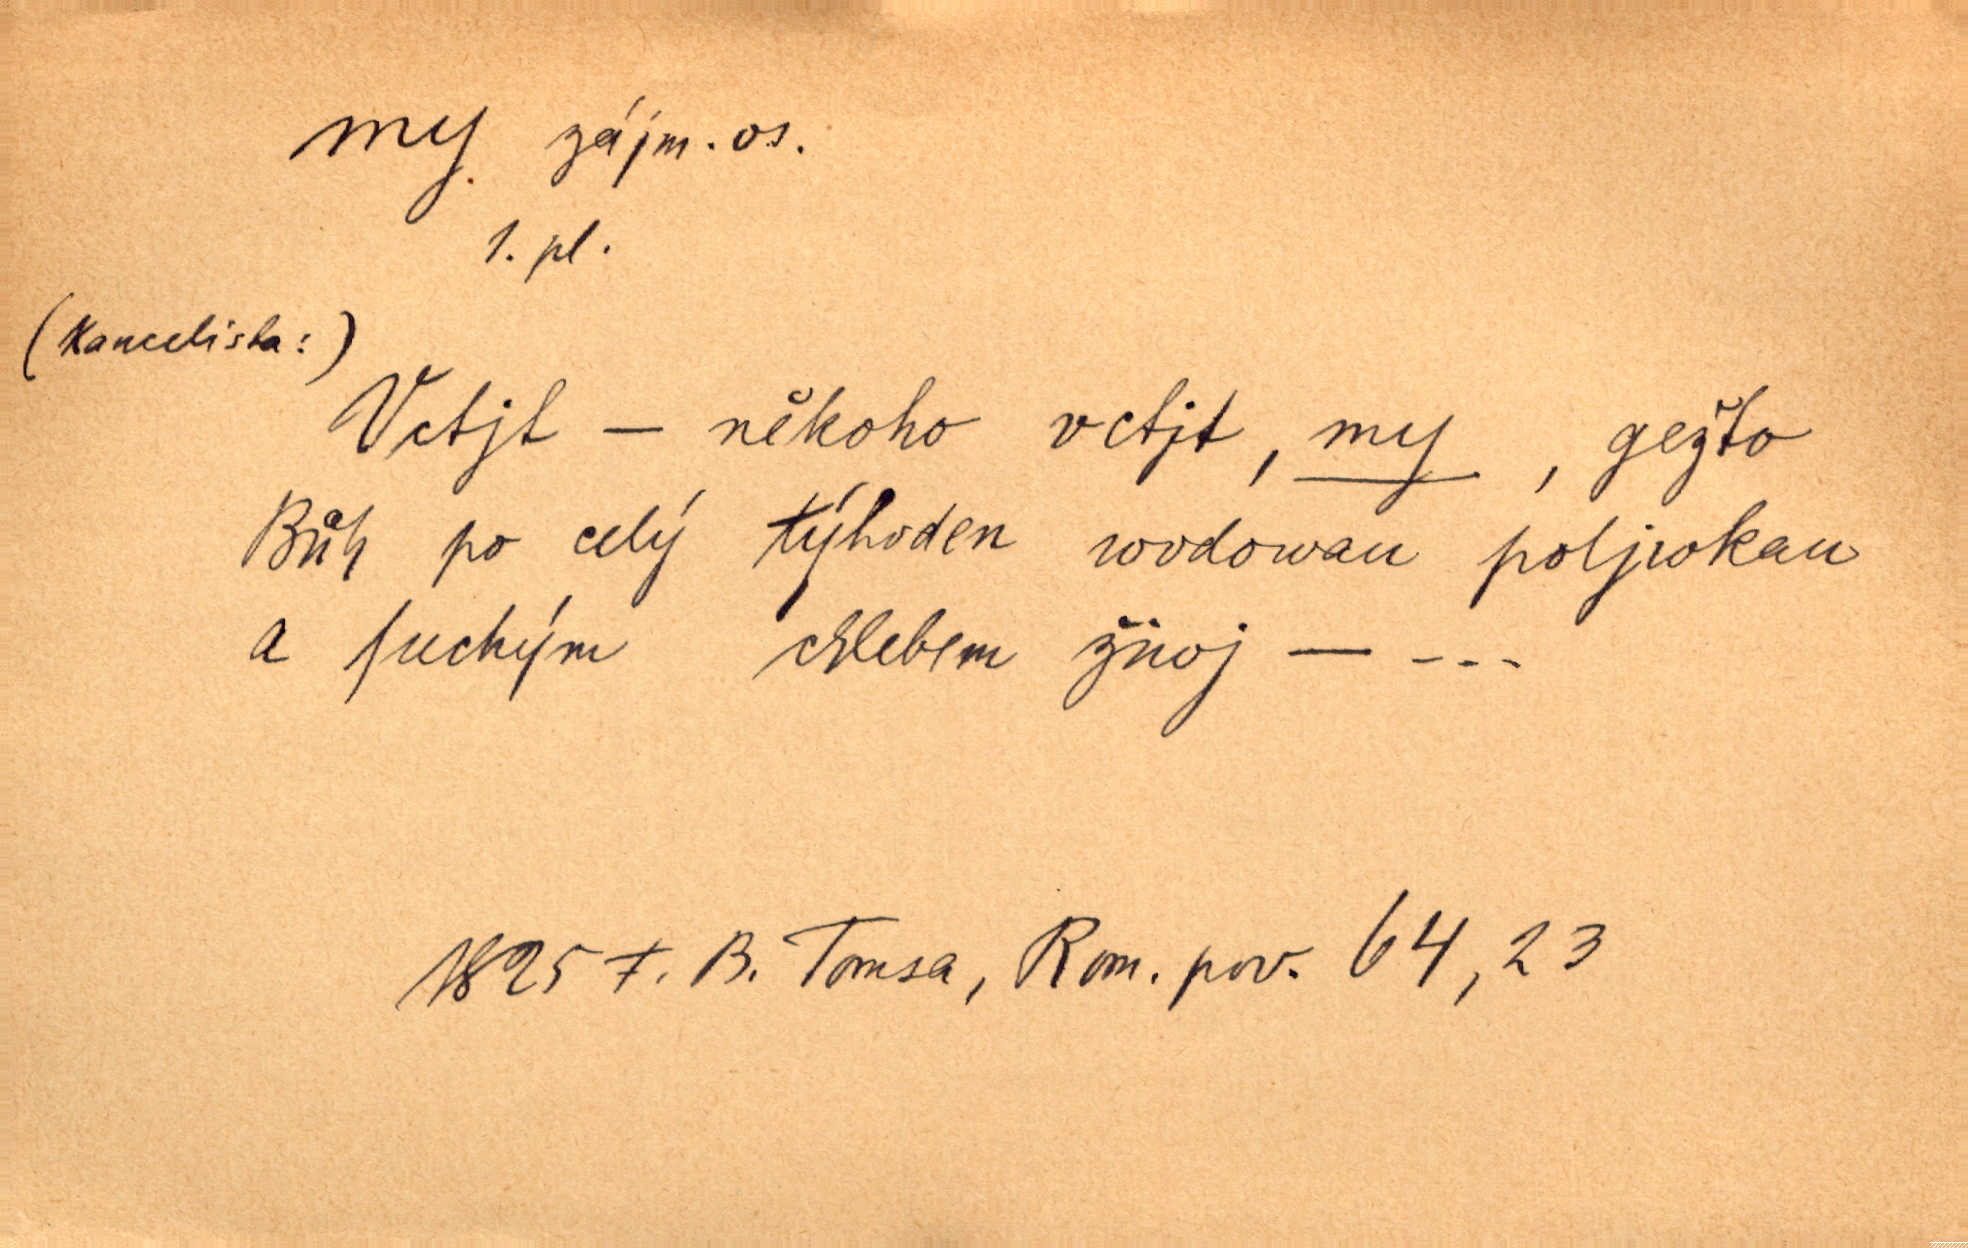 my zájm. os.
1. pl.
(Kancelista:)
Vctjt — někoho vctjt, my, gežto
Bůh po celý týhoden wodowau poljwkau
a suchým chlebem žiwj — ---
1825 F. B. Tomsa, Rom. pov. 64, 23